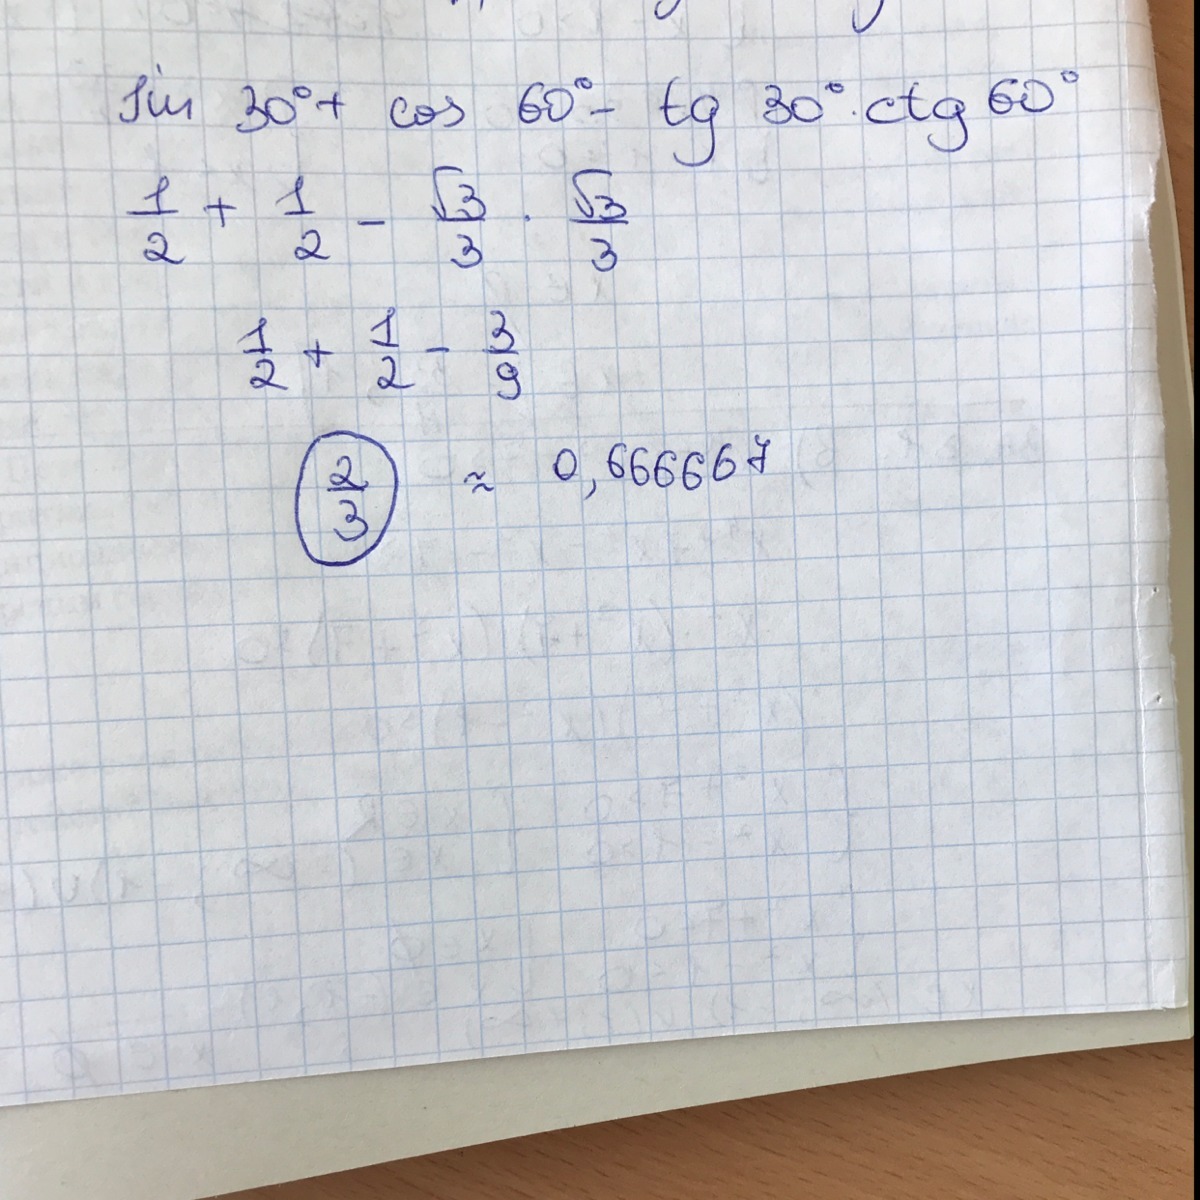 sin 30° + cos 60° - tg 30° · ctg 60°
1/2 + 1/2 - √3/3 · √3/3
1/2 + 1/2 - 3/9
2/3 ≈ 0,666667